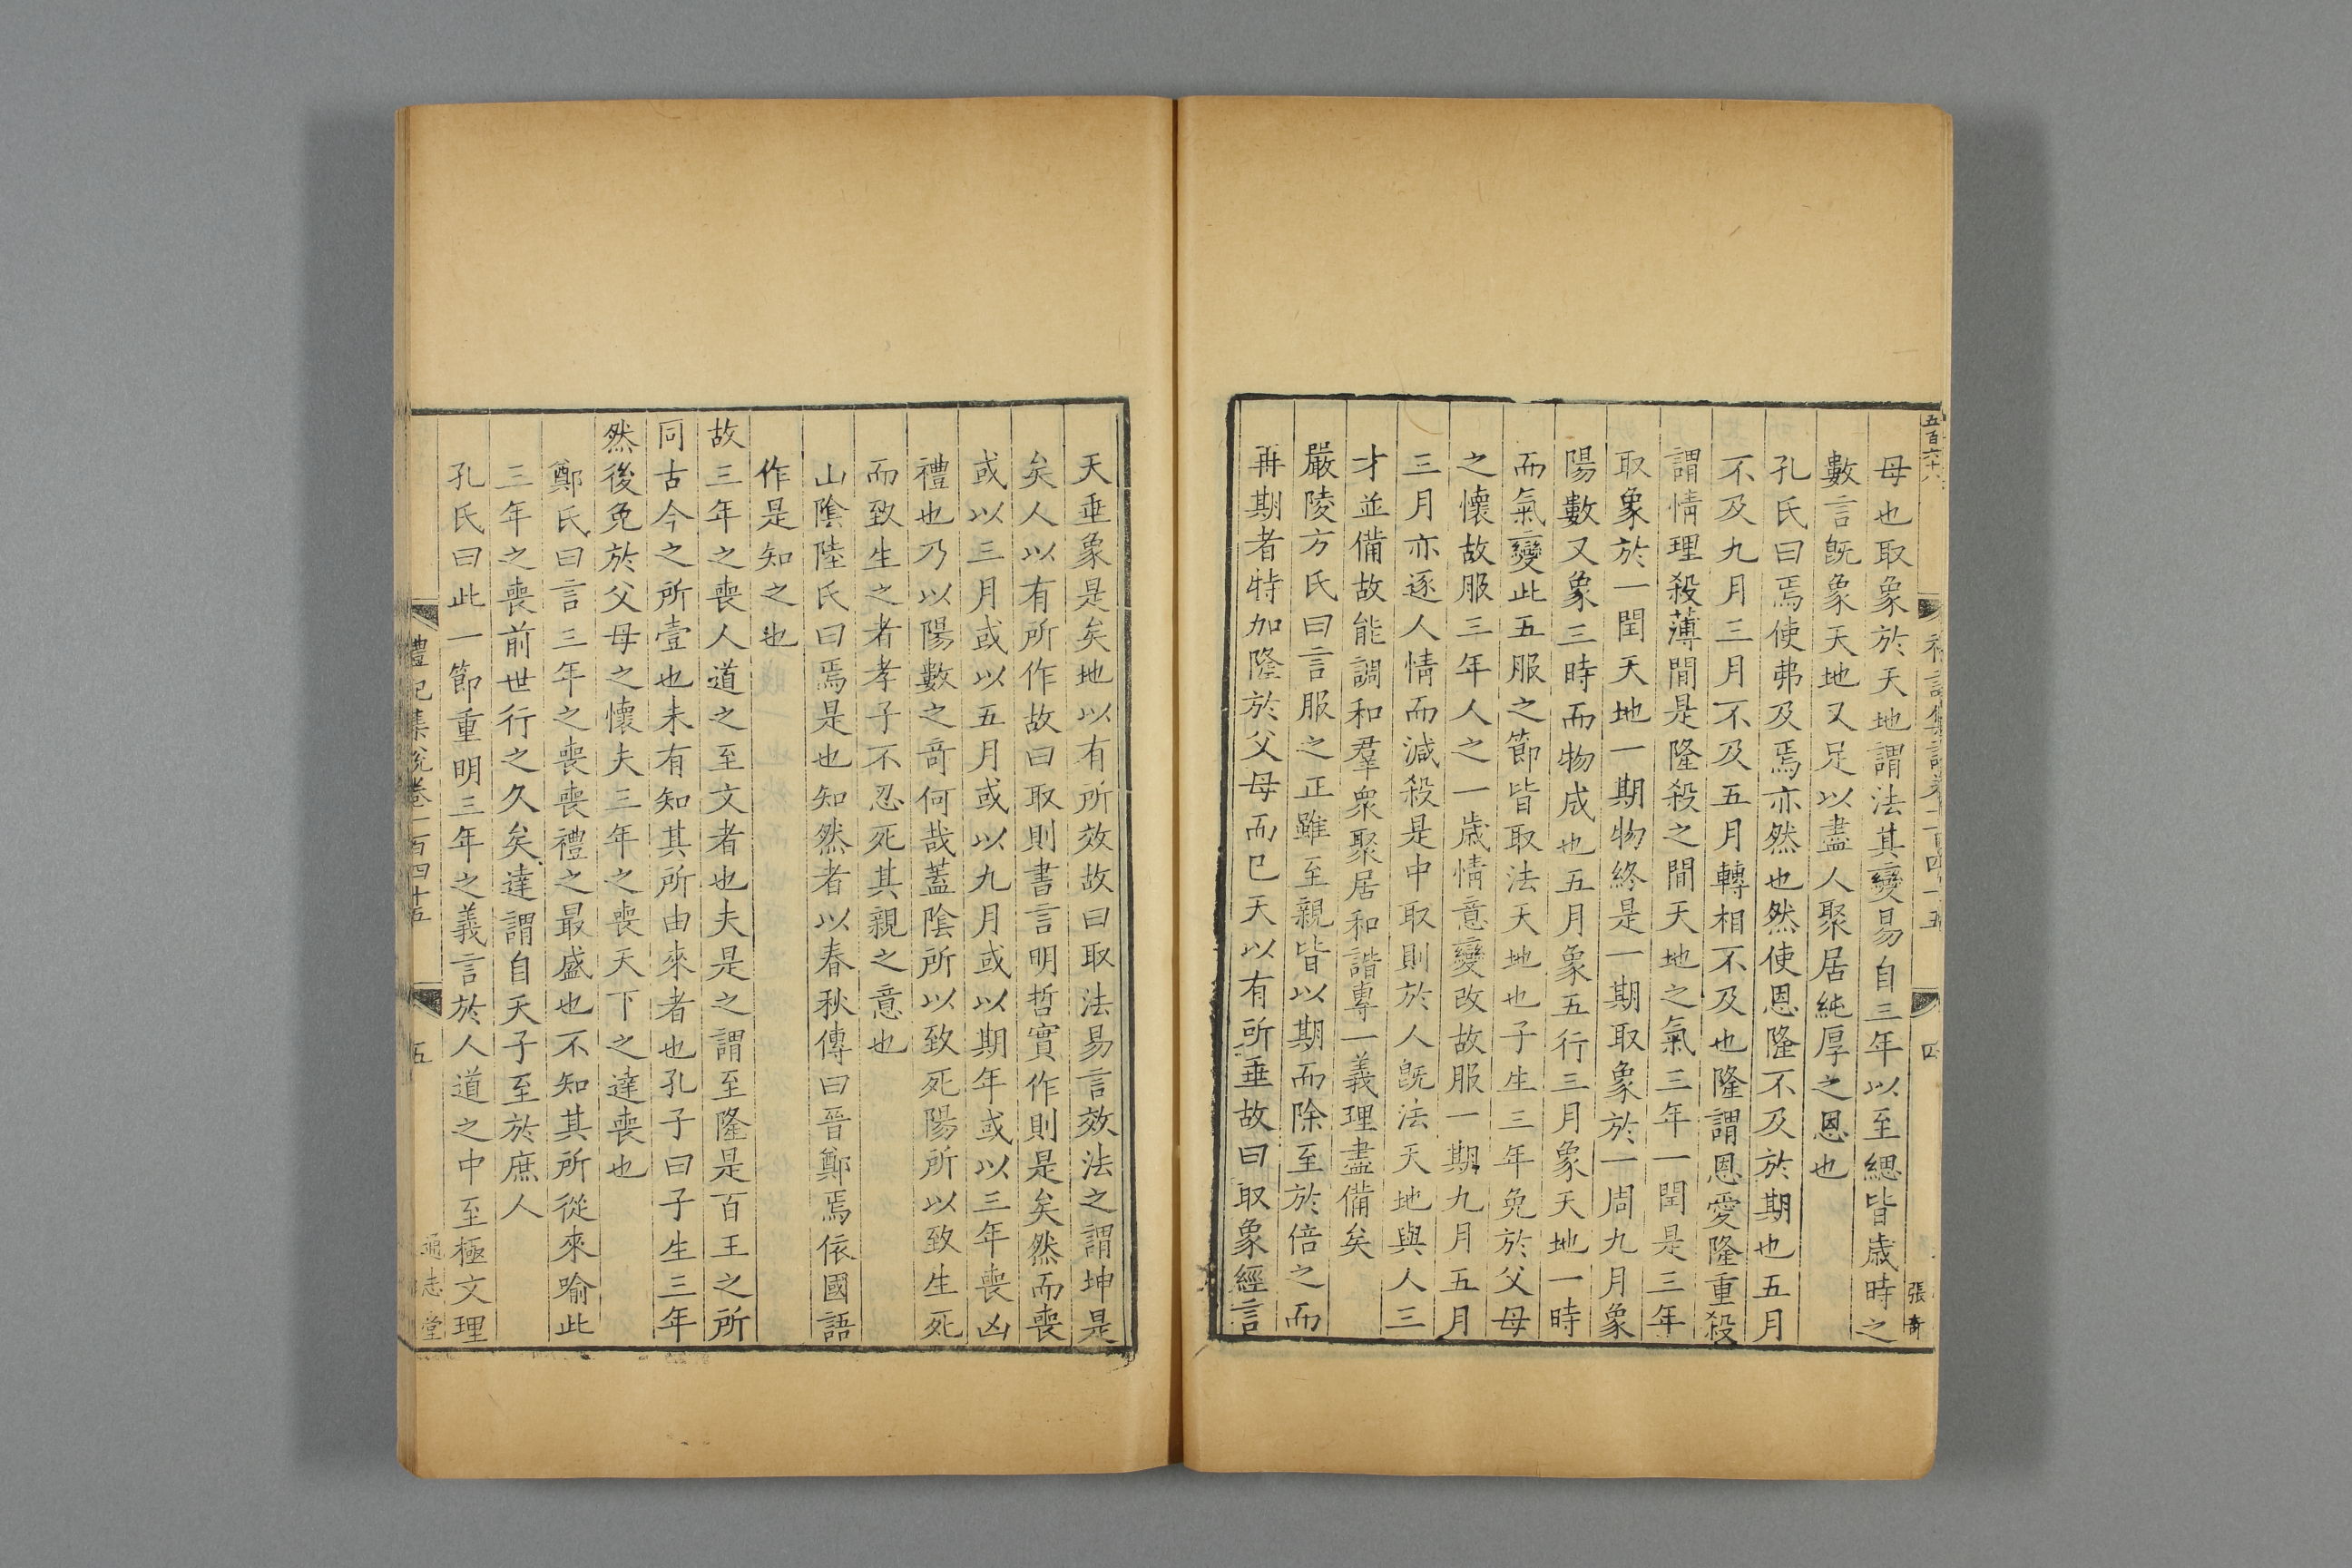 五百六十八
禮記集說卷一百四十五
四
張奇
母也取象於天地謂法其變易自三年以至緦皆歲時之
數言旣象天地又足以盡人聚居純厚之恩也
孔氏曰焉使弗及焉亦然也然使恩隆不及於期也五月
不及九月三月不及五月轉相不及也隆謂恩愛隆重殺
謂情理殺薄閒是隆殺之閒天地之氣三年一閏是三年
取象於一閏天地一期物終是一期取象於一周九月象
陽數又象三時而物成也五月象五行三月象天地一時
而氣變此五服之節皆取法天地也子生三年免於父母
之懷故服三年人之一歲情意變改故服一期九月五月
三月亦逐人情而減殺是中取則於人旣法天地與人三
才並備故能調和羣衆聚居和諧專一義理盡備矣
嚴陵方氏曰言服之正雖至親皆以期而除至於倍之而
再期者特加隆於父母而已天以有所垂故曰取象經言
天垂象是矣地以有所效故曰取法易言效法之謂坤是
矣人以有所作故曰取則書言明哲實作則是矣然而喪
或以三月或以五月或以九月或以期年或以三年喪凶
禮也乃以陽數之奇何哉蓋陰所以致死陽所以致生死
而致生之者孝子不忍死其親之意也
山陰陸氏曰焉是也知然者以春秋傳曰晉鄭焉依國語
作是知之也
故三年之喪人道之至文者也夫是之謂至隆是百王之所
同古今之所壹也未有知其所由來者也孔子曰子生三年
然後免於父母之懷夫三年之喪天下之達喪也
鄭氏曰言三年之喪喪禮之最盛也不知其所從來喻此
三年之喪前世行之久矣達謂自天子至於庶人
孔氏曰此一節重明三年之義言於人道之中至極文理
禮記集說卷一百四十五
五
通志堂